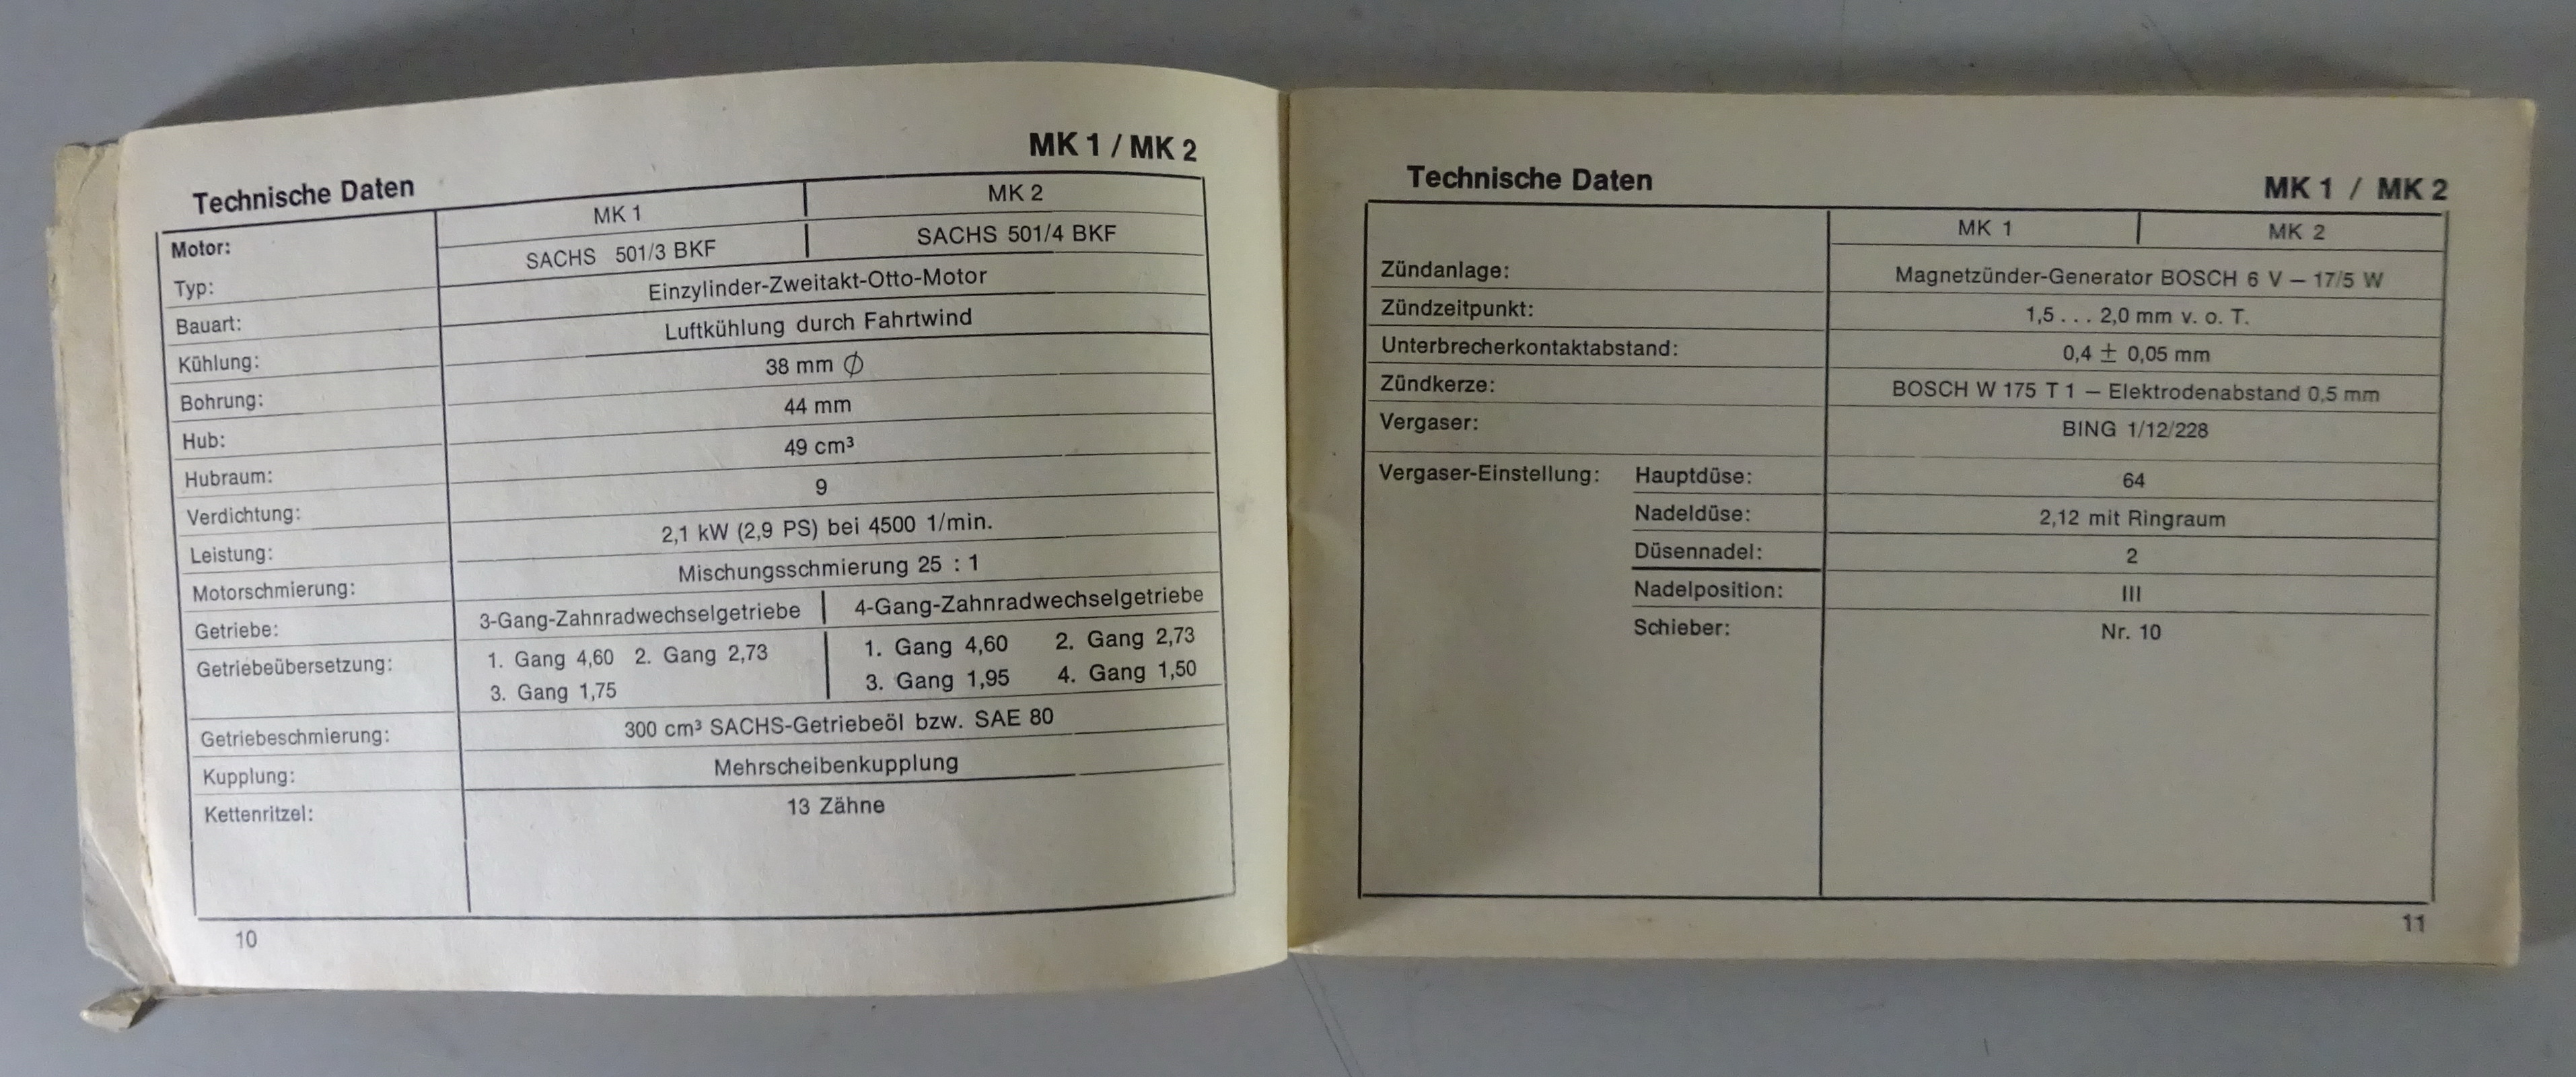 MK 1 / MK 2
Technische Daten
MK 1 MK 2
Motor: SACHS 501/3 BKF SACHS 501/4 BKF
Typ: Einzylinder-Zweitakt-Otto-Motor
Bauart: Luftkühlung durch Fahrtwind
Kühlung: 38 mm ϕ
Bohrung: 44 mm
Hub: 49 cm³
Hubraum: 9
Verdichtung: 2,1 kW (2,9 PS) bei 4500 1/min.
Leistung: Mischungsschmierung 25 : 1
Motorschmierung: 3-Gang-Zahnradwechselgetriebe 4-Gang-Zahnradwechselgetriebe
Getriebe: 1. Gang 4,60 2. Gang 2,73 1. Gang 4,60 2. Gang 2,73
Getriebeübersetzung: 3. Gang 1,75 3. Gang 1,95 4. Gang 1,50
Getriebeschmierung: 300 cm³ SACHS-Getriebeöl bzw. SAE 80
Kupplung: Mehrscheibenkupplung
Kettenritzel: 13 Zähne
10
Technische Daten MK 1 / MK 2
MK 1 MK 2
Zündanlage: Magnetzünder-Generator BOSCH 6 V – 17/5 W
Zündzeitpunkt: 1,5 . . . 2,0 mm v. o. T.
Unterbrecherkontaktabstand: 0,4 ± 0,05 mm
Zündkerze: BOSCH W 175 T 1 – Elektrodenabstand 0,5 mm
Vergaser: BING 1/12/228
Vergaser-Einstellung: Hauptdüse: 64
Nadeldüse: 2,12 mit Ringraum
Düsennadel: 2
Nadelposition: III
Schieber: Nr. 10
11